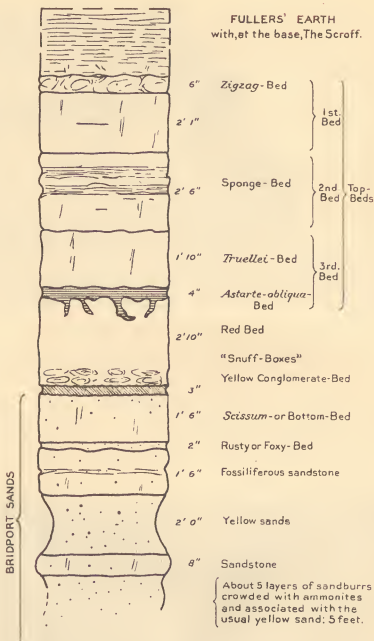 FULLERS' EARTH
with, at the base, The Scroff.
6" Zigzag-Bed
2' 1"
1st. Bed
2' 6" Sponge-Bed
2nd Bed
Top-Beds
1' 10" Truellei-Bed
3rd. Bed
4" Astarte-obliqua-Bed
2' 10" Red Bed
"Snuff-Boxes"
Yellow Conglomerate-Bed
3"
1' 6" Scissum-or Bottom-Bed
2" Rusty or Foxy-Bed
1' 6" Fossiliferous sandstone
2' 0" Yellow sands
8" Sandstone
About 5 layers of sandburrs
crowded with ammonites
and associated with the
usual yellow sand; 5 feet.
BRIDPORT SANDS